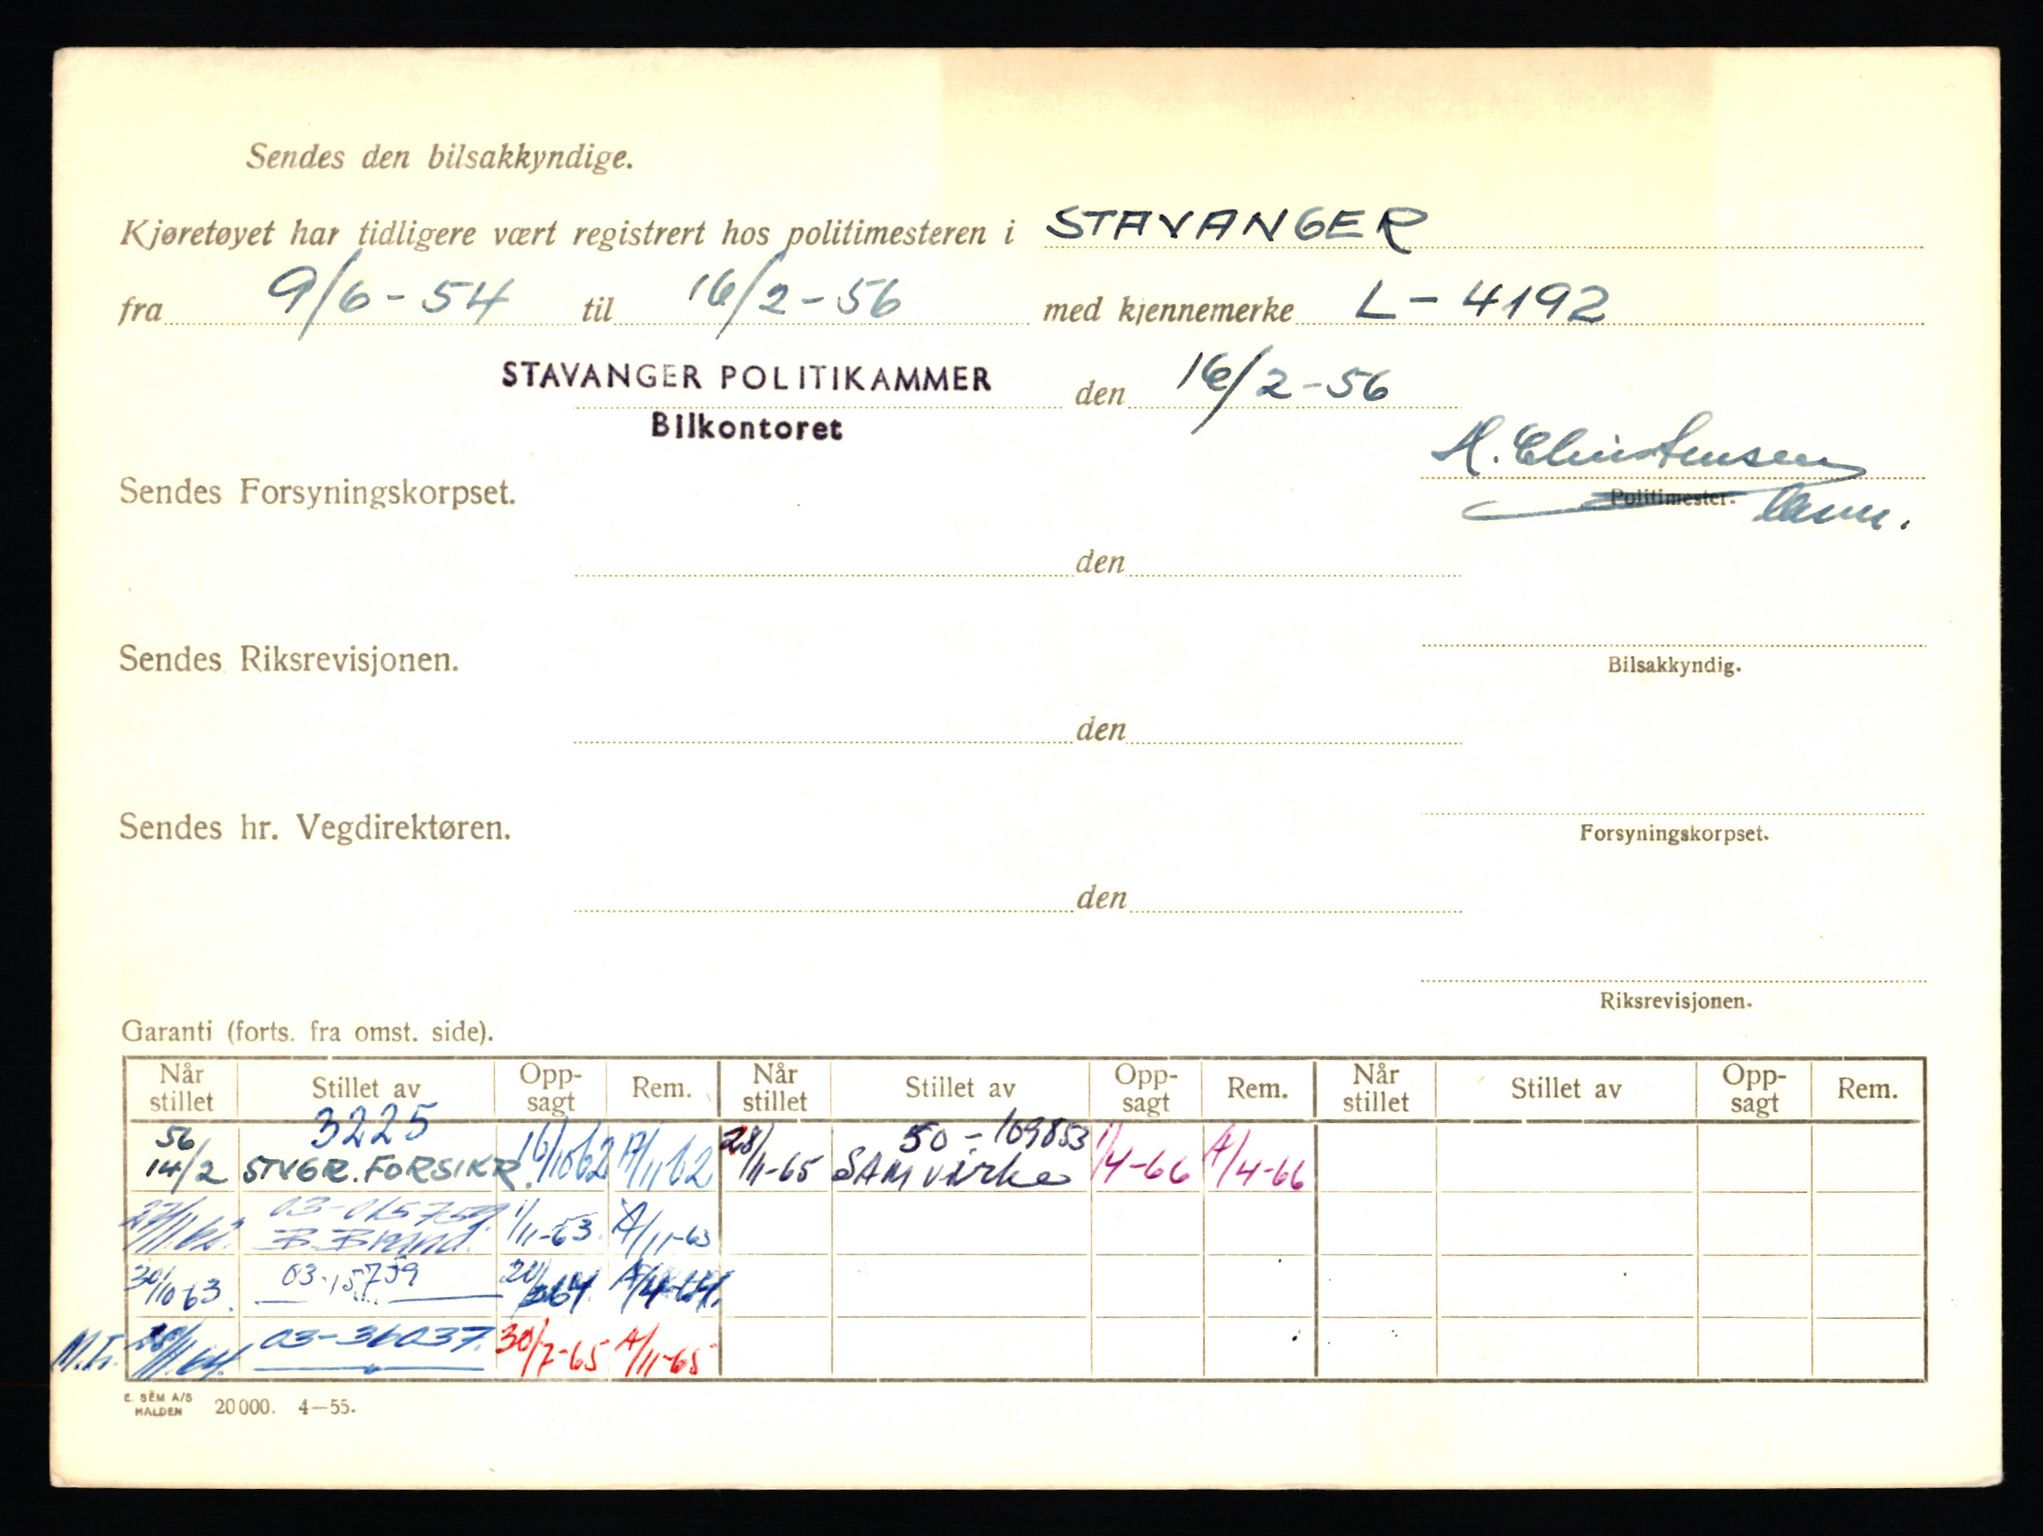 Sendes den bilsakkyndige.
Kjøretøyet har tidligere vært registrert hos politimesteren i STAVANGER
fra 9/6-54 til 16/2-56 med kjennemerke L-4192
STAVANGER POLITIKAMMER den 16/2-56
Bilkontoret
H. Christensen
Sendes Forsyningskorpset.
Politimester.
den
Sendes Riksrevisjonen.
Bilsakkyndig.
den
Sendes hr. Vegdirektøren.
Forsyningskorpset.
den
Riksrevisjonen.
Garanti (forts. fra omst. side).
Når stillet Stillet av Opp-sagt Rem. Når stillet Stillet av Opp-sagt Rem. Når stillet Stillet av Opp-sagt Rem.
56 3225 50-109853
14/2 STVGR. FORSIKR. 16/10 62 A/11 62 28/11-65 SAMvirke 1/4-66 A/4-66
27/11.62. 03-015759. B. Brand. 1/11-63. A/11-63
30/10 63. 03-15759 A/4-64.
M.F. 03-36037. 30/7-65 A/11-65
E. SEM A/S
HALDEN 20000. 4—55.